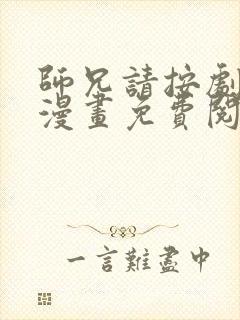 師兄請按劇
漫畫免費閱
一言難盡中